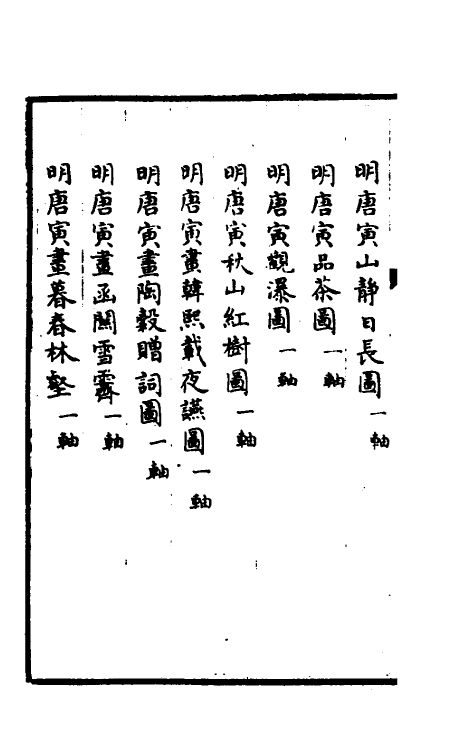 明唐寅山靜日長圖一軸
明唐寅品茶圖一軸
明唐寅觀瀑圖一軸
明唐寅秋山紅樹圖一軸
明唐寅畫韓熙載夜讌圖一軸
明唐寅畫陶穀贈詞圖一軸
明唐寅畫函關雪霽一軸
明唐寅畫暮春林壑一軸